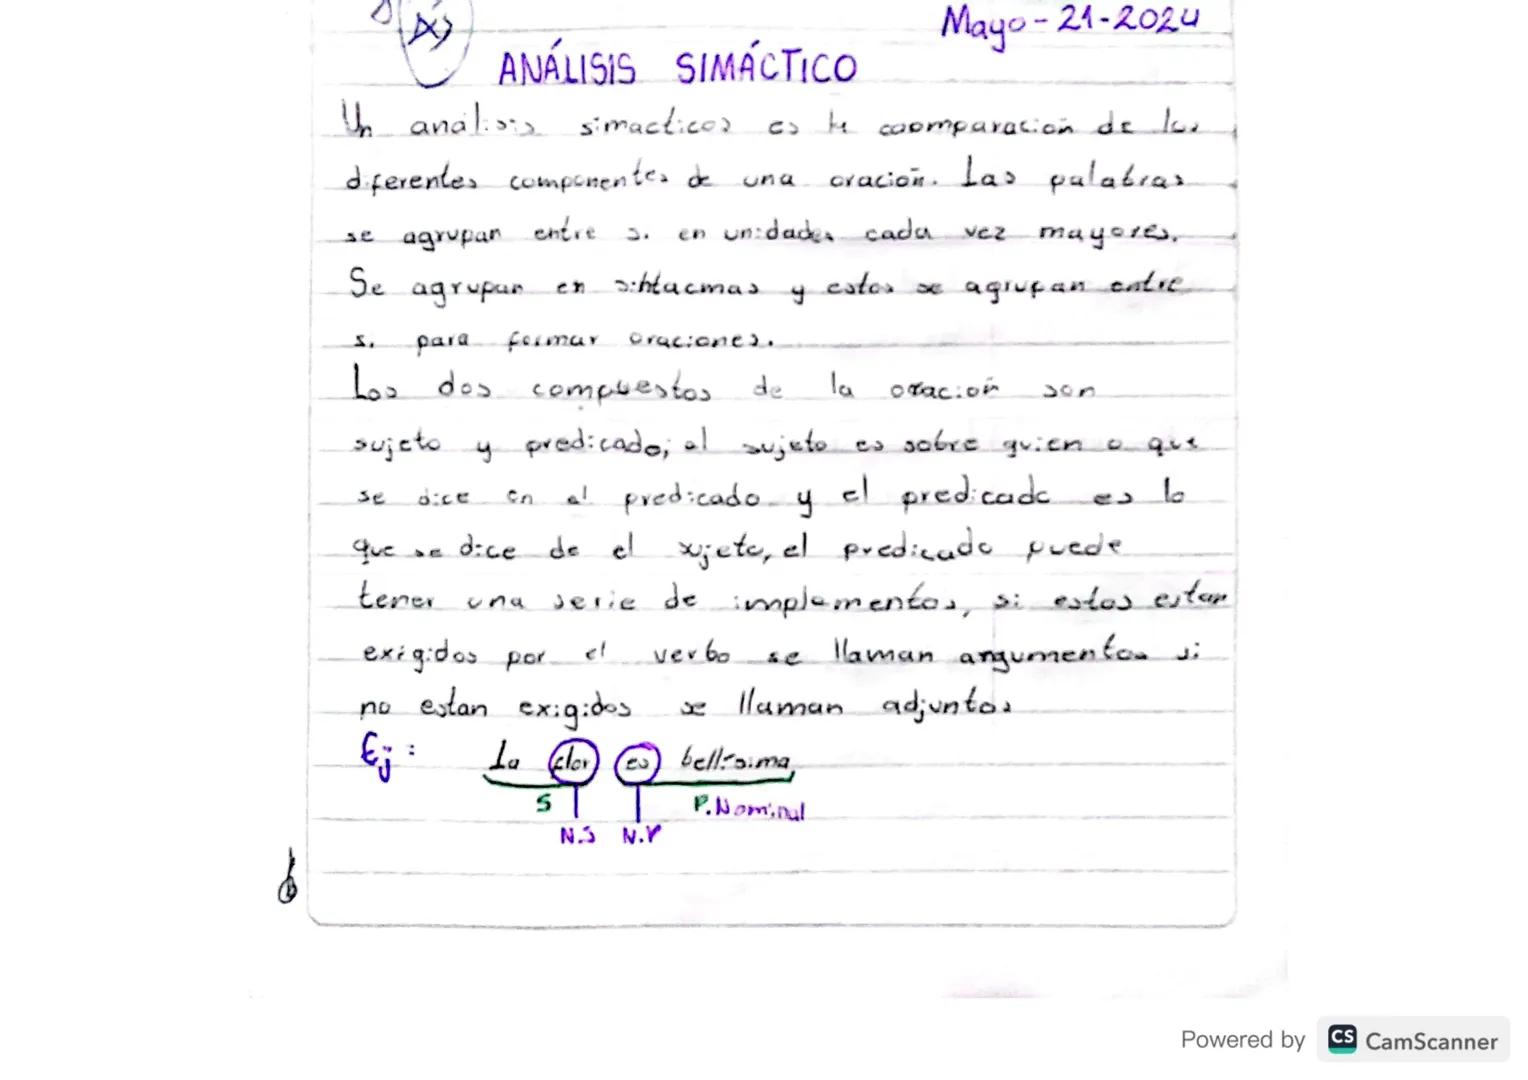 Mayo-21-2024
ANÁLISIS SIMÁCTICO
Un analisis simacticos es la coomparación de las
diferentes componentes de una oración. Las palabras
se agrupan entre si en unidades cada vez mayores.
Se agrupan en sihtacmas y estos se agrupan entre
si para formar oraciones.
Los dos compuestos de la oración son
sujeto y predicado; el sujeto es sobre quien o que
se dice en el predicado y el predicado es lo
que se dice de el sujeto, el predicado puede
tener una serie de implementos, si estos estan
exigidos por el verbo se llaman argumentos si
no estan exigidos se llaman adjuntos
Ej: La flor es bellísima
S P.Nominal
N.S N.V
Powered by CS CamScanner